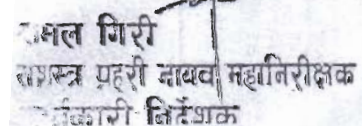 गिरी
सशस्त्र प्रहरी नायव महानिरीक्षक
कार्यकारी निर्देशक